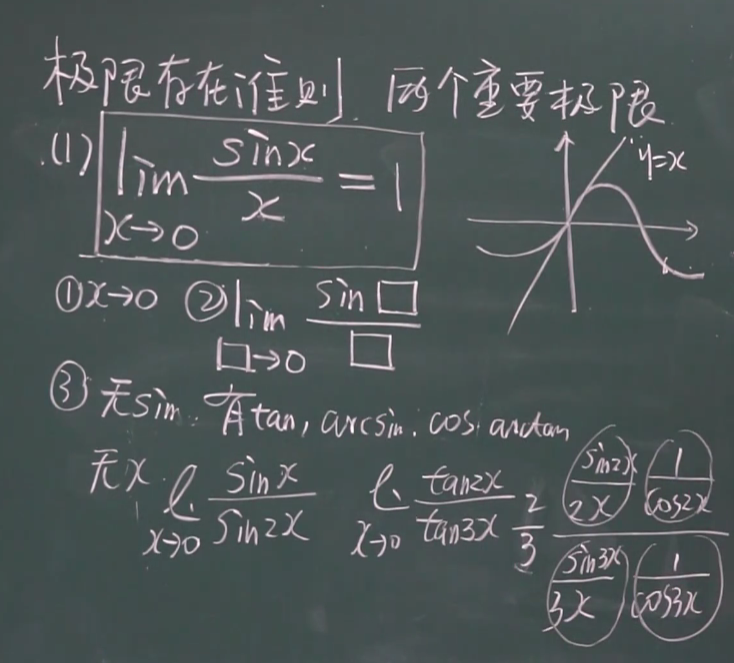 极限存在准则 两个重要极限
(1) lim x→0 sinx/x = 1
y=x
①x→0 ②lim □→0 sin□/□
③无sin. 有tan, arcsin. cos. arctan
无x. l. x→0 sinx/sin2x l. x→0 tan2x/tan3x 2/3 sin2x/2x 1/cos2x
sin3x/3x 1/cos3x